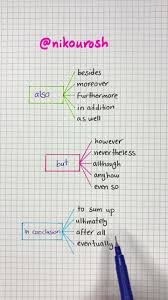 @nikourosh
also
besides
moreover
furthermore
in addition
as well
but
however
nevertheless
although
anyhow
even so
In conclusion
to sum up
ultimately
after all
eventually